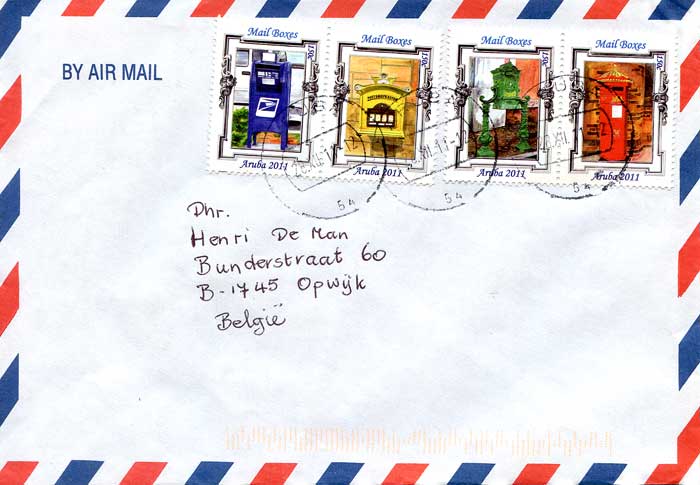 Mail Boxes
150c
Aruba 2011
Mail Boxes
150c
Aruba 2011
Mail Boxes
150c
Aruba 2011
Mail Boxes
150c
Aruba 2011
54
54
54
BY AIR MAIL
Dhr.
Henri De Man
Bunderstraat 60
B-1745 Opwijk
België